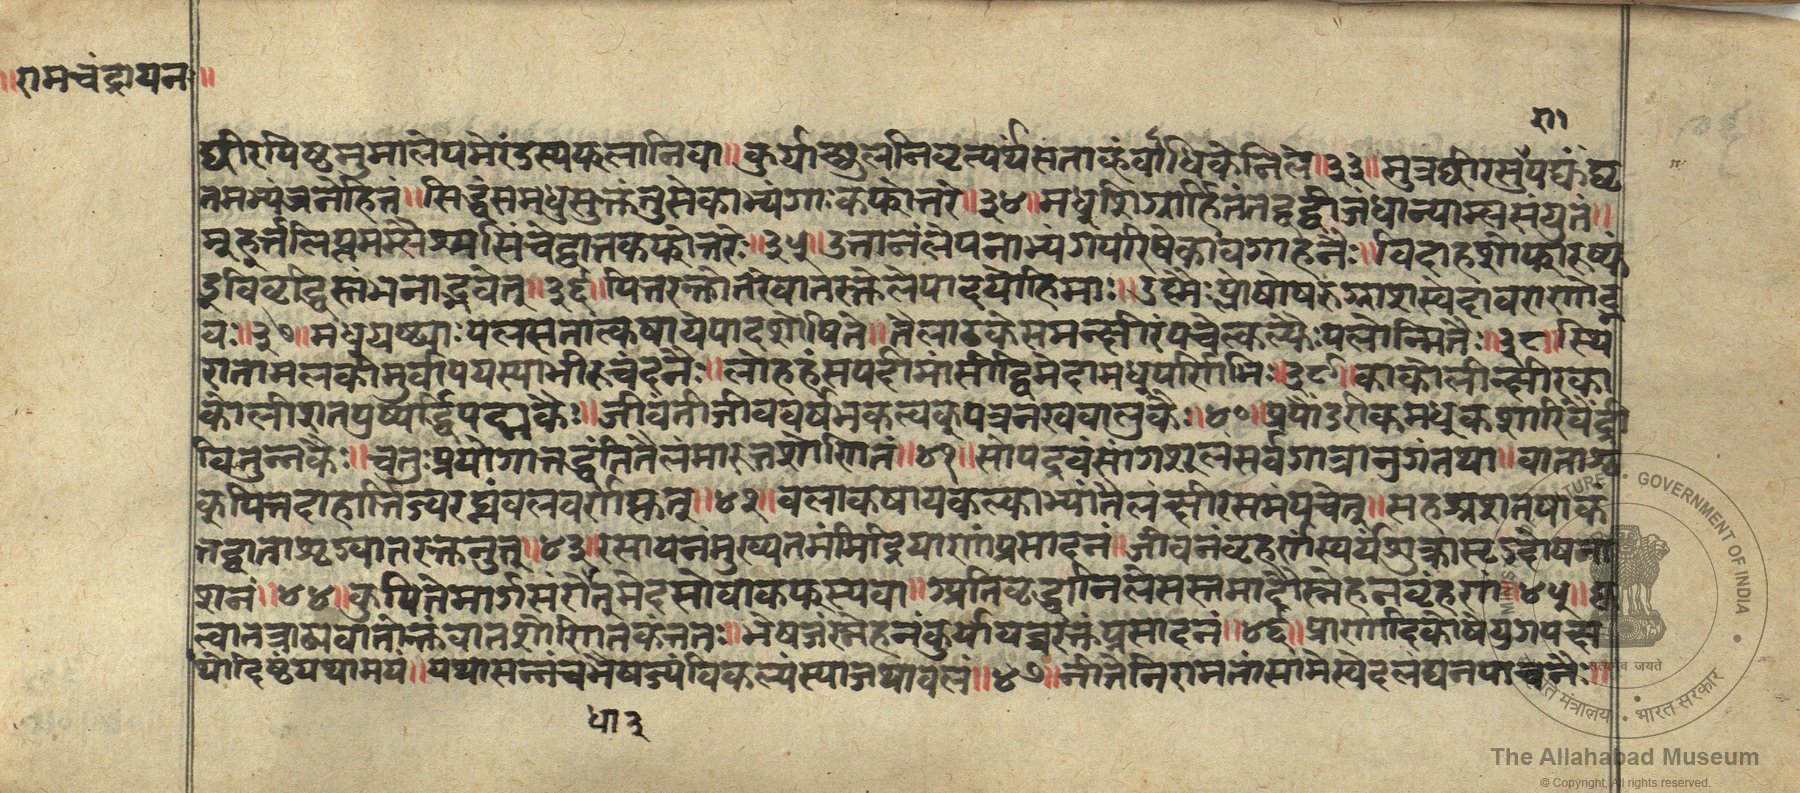 ॥रामचंद्रायन॥
रा१
क्षीरपिष्टमुमालेपमेरंडस्यफलानिवा॥कुर्याच्छूलनिवृत्यर्थंसताव्हांवाधिकेनिले॥३३॥मुत्रक्षीरसुंपक्कंघृ
तमभ्यंजनेहितं॥सिद्धंसमधुसुक्तंतुसेकाभ्यंगाःकफोत्तरे॥३४॥मधुशिग्रोर्हितंतद्वद्वीजंधान्याम्लसंयुतं॥
मुहूर्त्तलिप्तमम्लैश्चसिंचेद्वातकफोत्तरे॥३५॥उत्तानंलेपनाभ्यंगपरिषेकावगाहनैः॥विदाहशोफरुक्
कंडुविवृद्धिस्तंभनाद्भवेत्॥३६॥पित्तरक्तोत्तरेवातरक्तेलेपादयोहिमाः॥उष्णैःप्लोषोषरुग्रागस्वेदावदरणोद्भ
वः॥३७॥मधुयष्ट्याःपलसतात्कषायेपादशेषिते॥तैलाढकंसमक्षीरंपचेत्कल्कैःपलोन्मितैः॥३८॥स्थि
रातामलकीमुर्वापयस्याभीरुचंदनैः॥लोहहंसपदीमांसीद्विमेदामधुपर्णिभिः॥३९॥काकोलीक्षीरका
कोलीशतपुष्पर्द्धिपद्मकैः॥जीवंतीजीवकर्षभकत्वक्पत्रनखवालुकैः॥४०॥प्रपौंडरीकमधुकशारिवैंद्री
वितुन्नकैः॥चतुःप्रयोगात्तद्धंतितैलंमारुतशोणितं॥४१॥सोपद्रवंसांगशूलसर्वगात्रानुगंतथा॥वातास्र
कुपित्तदाहार्त्तिज्वरघ्नंबलवर्णकृत्॥४२॥बलाकषायकल्काभ्यांतैलंक्षीरसमंपचेत्॥सहस्रशतपाकं
तद्वातासृग्वातरक्तनुत्॥४३॥रसायनंमुख्यतमंमिंद्रियाणांप्रसादनं॥जीवनंबृंहणंस्वर्यंशुक्रासृग्दोषना
शनं॥४४॥कुपितेमार्गसंरोधात्मेदसोवाकफस्यवा॥अतिवृद्धानिलेसस्तमादौस्नेहनबृंहणं॥४५॥कृ
त्वातत्राढ्यवातोक्तंवातशोणितकंततः॥भेषजंस्नेहनंकुर्याद्यच्चरक्तप्रसादनं॥४६॥प्राणादिकोपेयुगपद्य
थोदिष्टंयथामयं॥यथासन्नंचभैषज्यंविकल्प्यंस्याद्यथाबलं॥४७॥नीतेनिरामतांसामेस्वेदलंघनपाचनैः॥
धा३
MINISTRY OF CULTURE • GOVERNMENT OF INDIA
सत्यमेव जयते
संस्कृति मंत्रालय • भारत सरकार
The Allahabad Museum
© Copyright, All rights reserved.